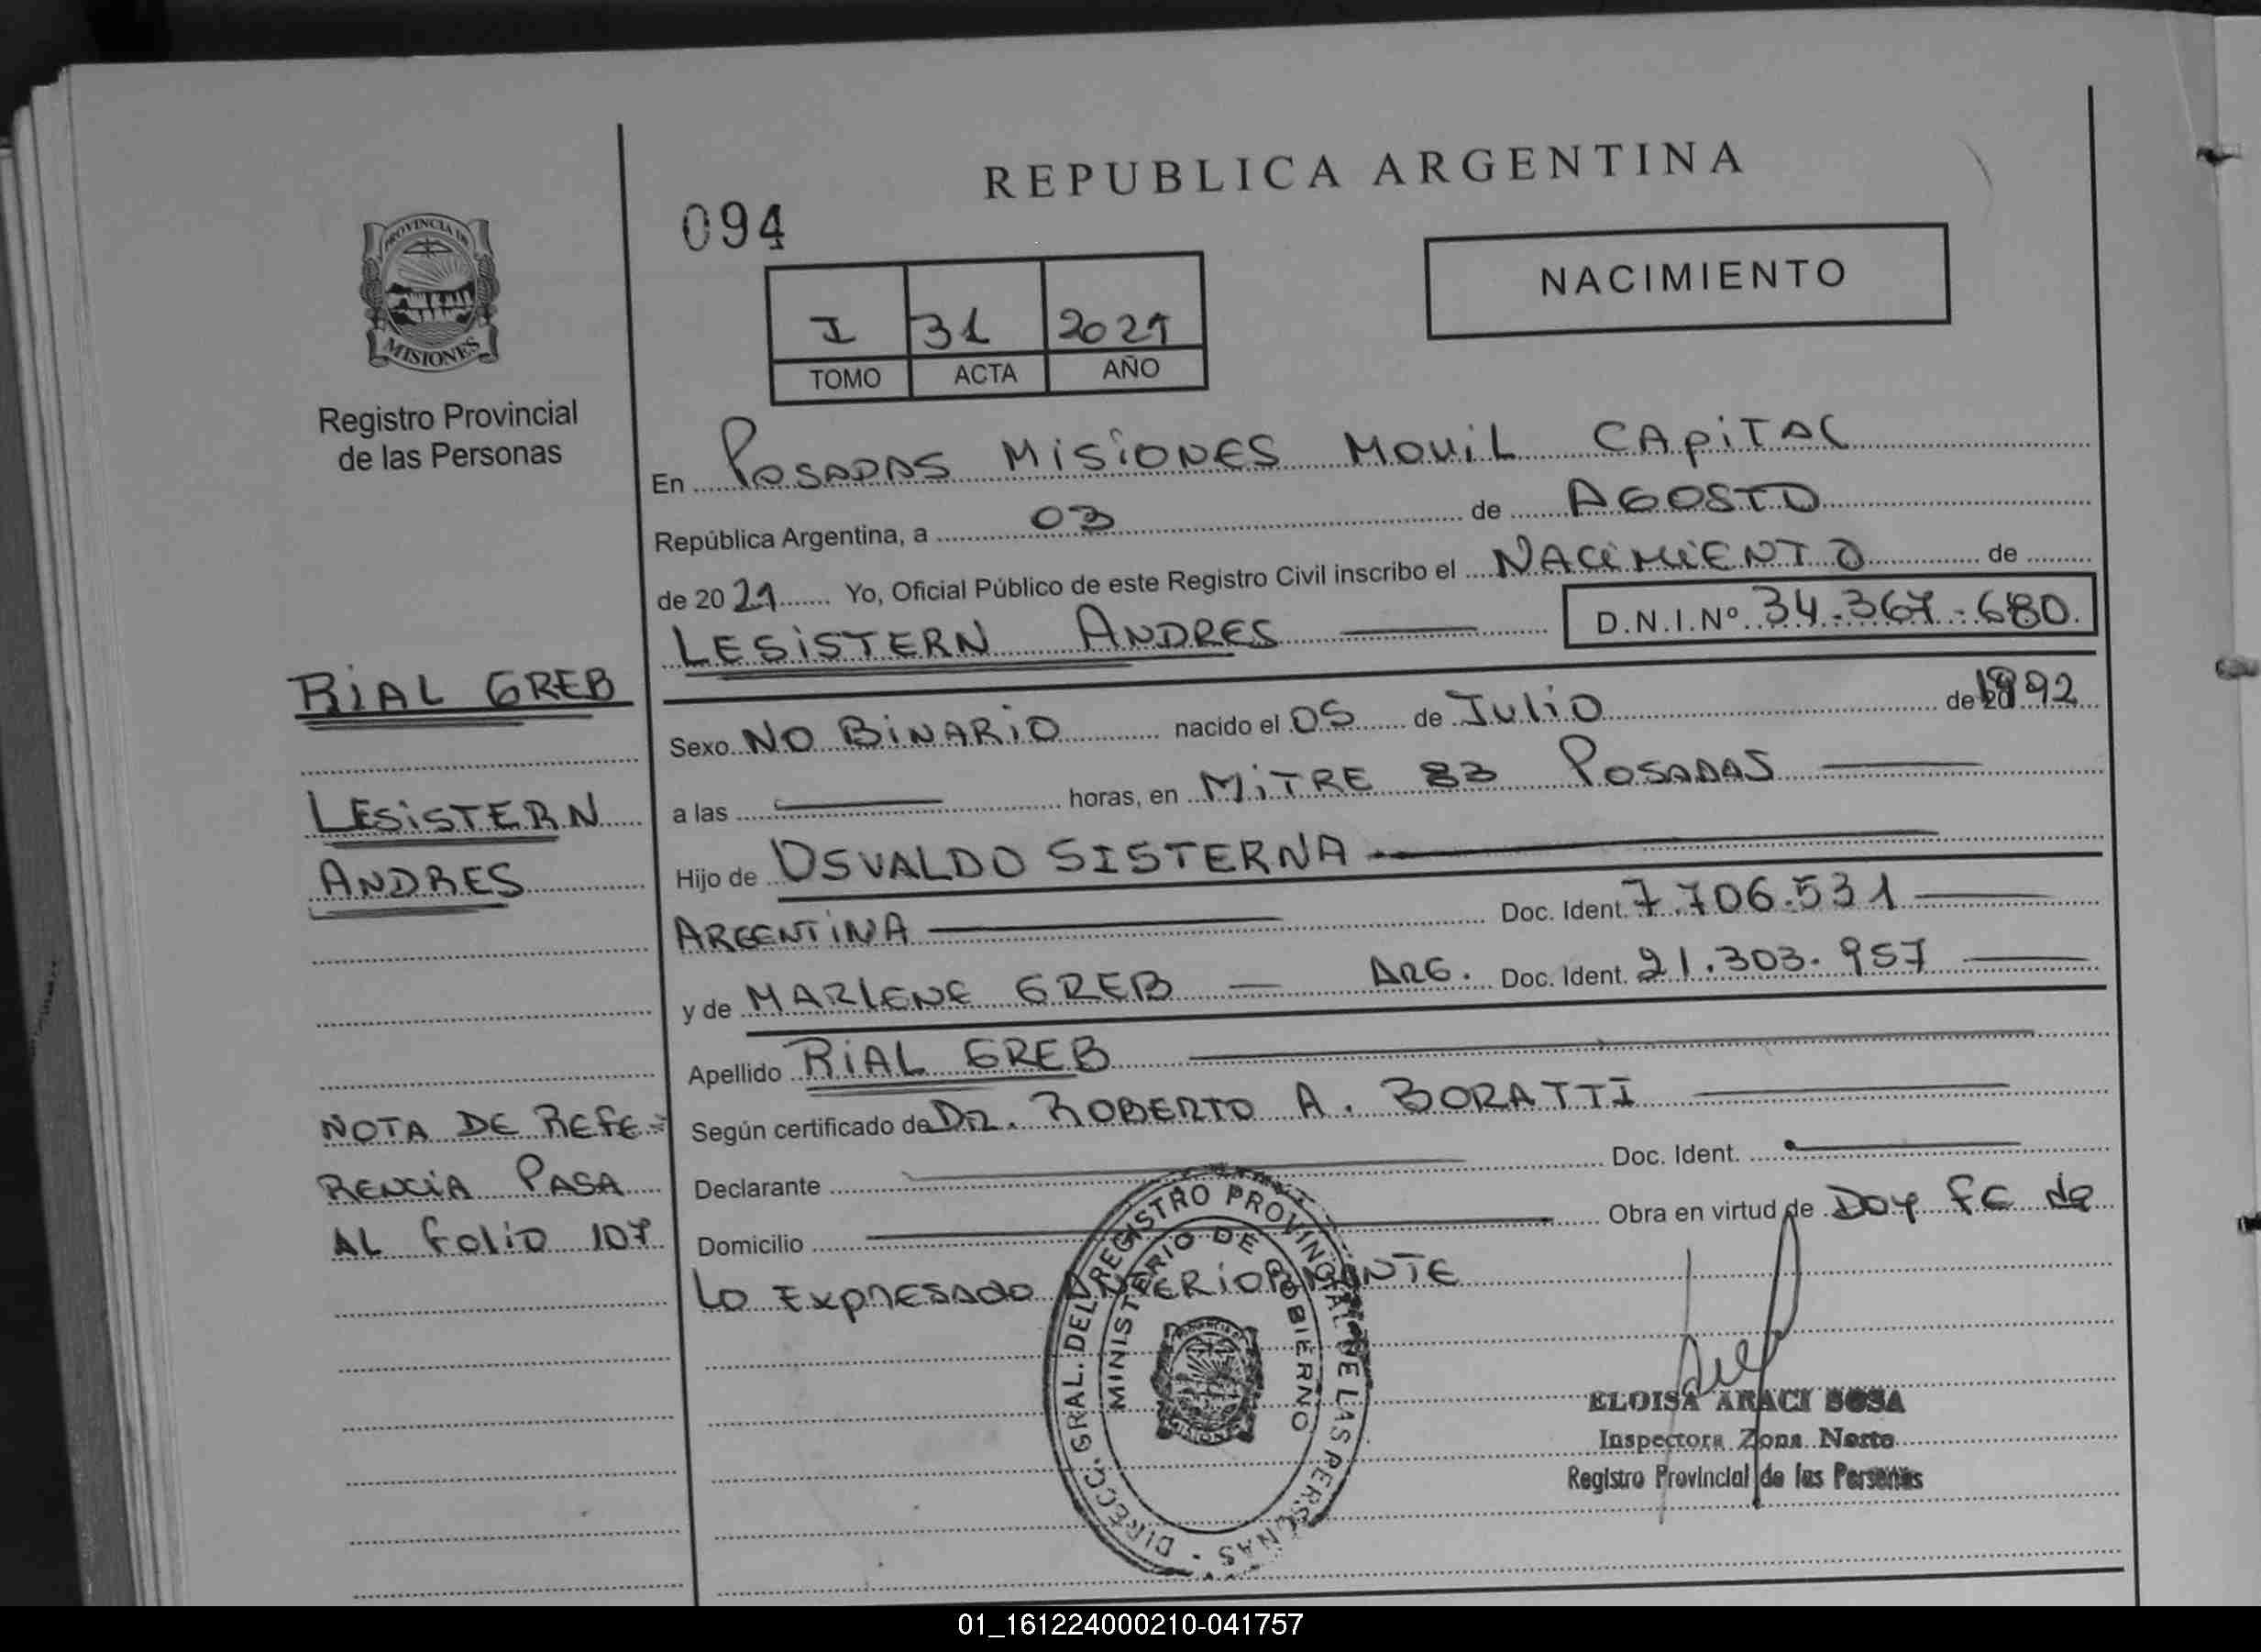 REPUBLICA ARGENTINA
094
NACIMIENTO
PROVINCIA DE
MISIONES
I 31 2021
TOMO ACTA AÑO
Registro Provincial
de las Personas
En POSADAS MISIONES MOVIL CAPITAL
República Argentina, a 03 de AGOSTO
de 2021 Yo, Oficial Público de este Registro Civil inscribo el NACIMIENTO de
LESISTERN ANDRES D.N.I.Nº 34.367.680.
RIAL GREB
Sexo NO BINARIO nacido el 05 de JULIO de 1992
LESISTERN
a las horas, en MITRE 83 POSADAS
ANDRES
Hijo de OSVALDO SISTERNA
ARGENTINA Doc. Ident. 7.706.531
y de MARLENE GREB ARG. Doc. Ident. 21.303.957
Apellido RIAL GREB
NOTA DE REFE=
RENCIA PASA
AL FOLIO 107
Según certificado de DR. ROBERTO A. BORATTI
Declarante Doc. Ident.
Domicilio Obra en virtud de Doy FE de
LO EXPRESADO ANTERIORMANTE
DIRECC. GRAL. DEL REGISTRO PROVINCIAL DE LAS PERSONAS
MINISTERIO DE GOBIERNO
ELOISA ARACI SOSA
Inspectora Zona Norte
Registro Provincial de las Personas
01_161224000210-041757